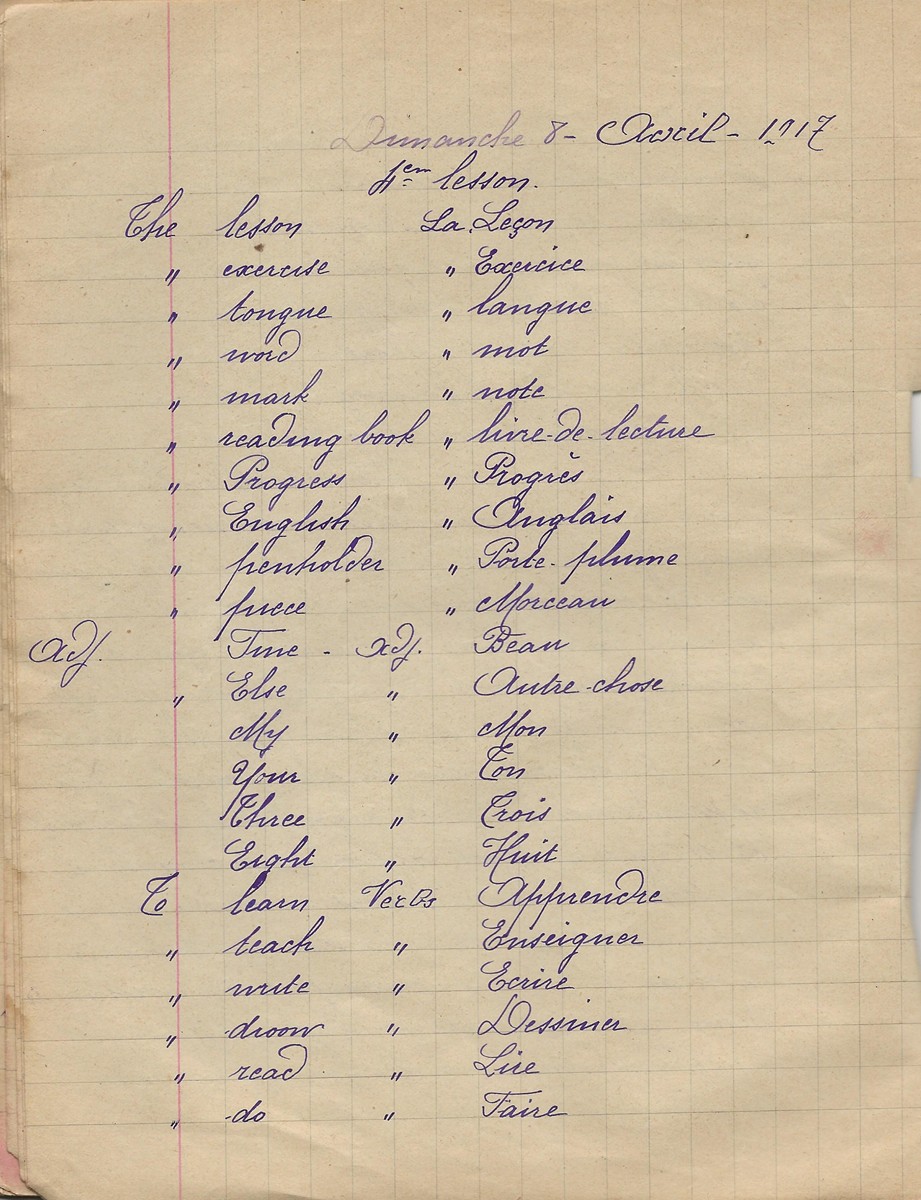 Dimanche 8 - Avril - 1917
4em lesson.
The lesson La Leçon
" exercise " Exercice
" tongue " langue
" word " mot
" mark " note
" reading book " livre-de-lecture
" Progress " Progrès
" English " Anglais
" penholder " Porte-plume
" piece " Morceau
Adj. Fine - adj. Beau
" Else " Autre-chose
My " Mon
Your " Ton
Three " Trois
Eight " Huit
To learn Verbs Apprendre
" teach " Enseigner
" write " Ecrire
" droow " Dessiner
" read " Lire
" do " Faire